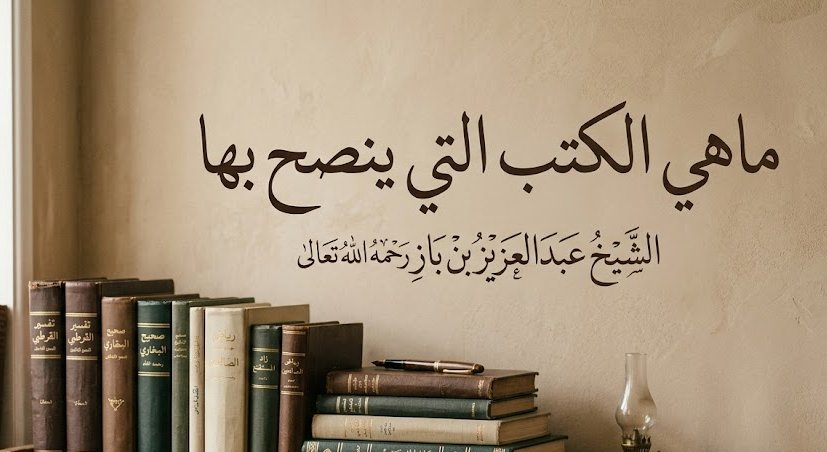 ماهي الكتب التي ينصح بها
الشَّيْخُ عَبْدَالعَزِيْزُ بْنُ بَازٍ رَحْمَهُ اللهُ تَعَالىٰ
تفسير
القرطبي
تفسير
القرطبي
صحيح
البخاري
صحيح
البخاري
رحمه الله
رياض
زاد
المستقنع
رياض